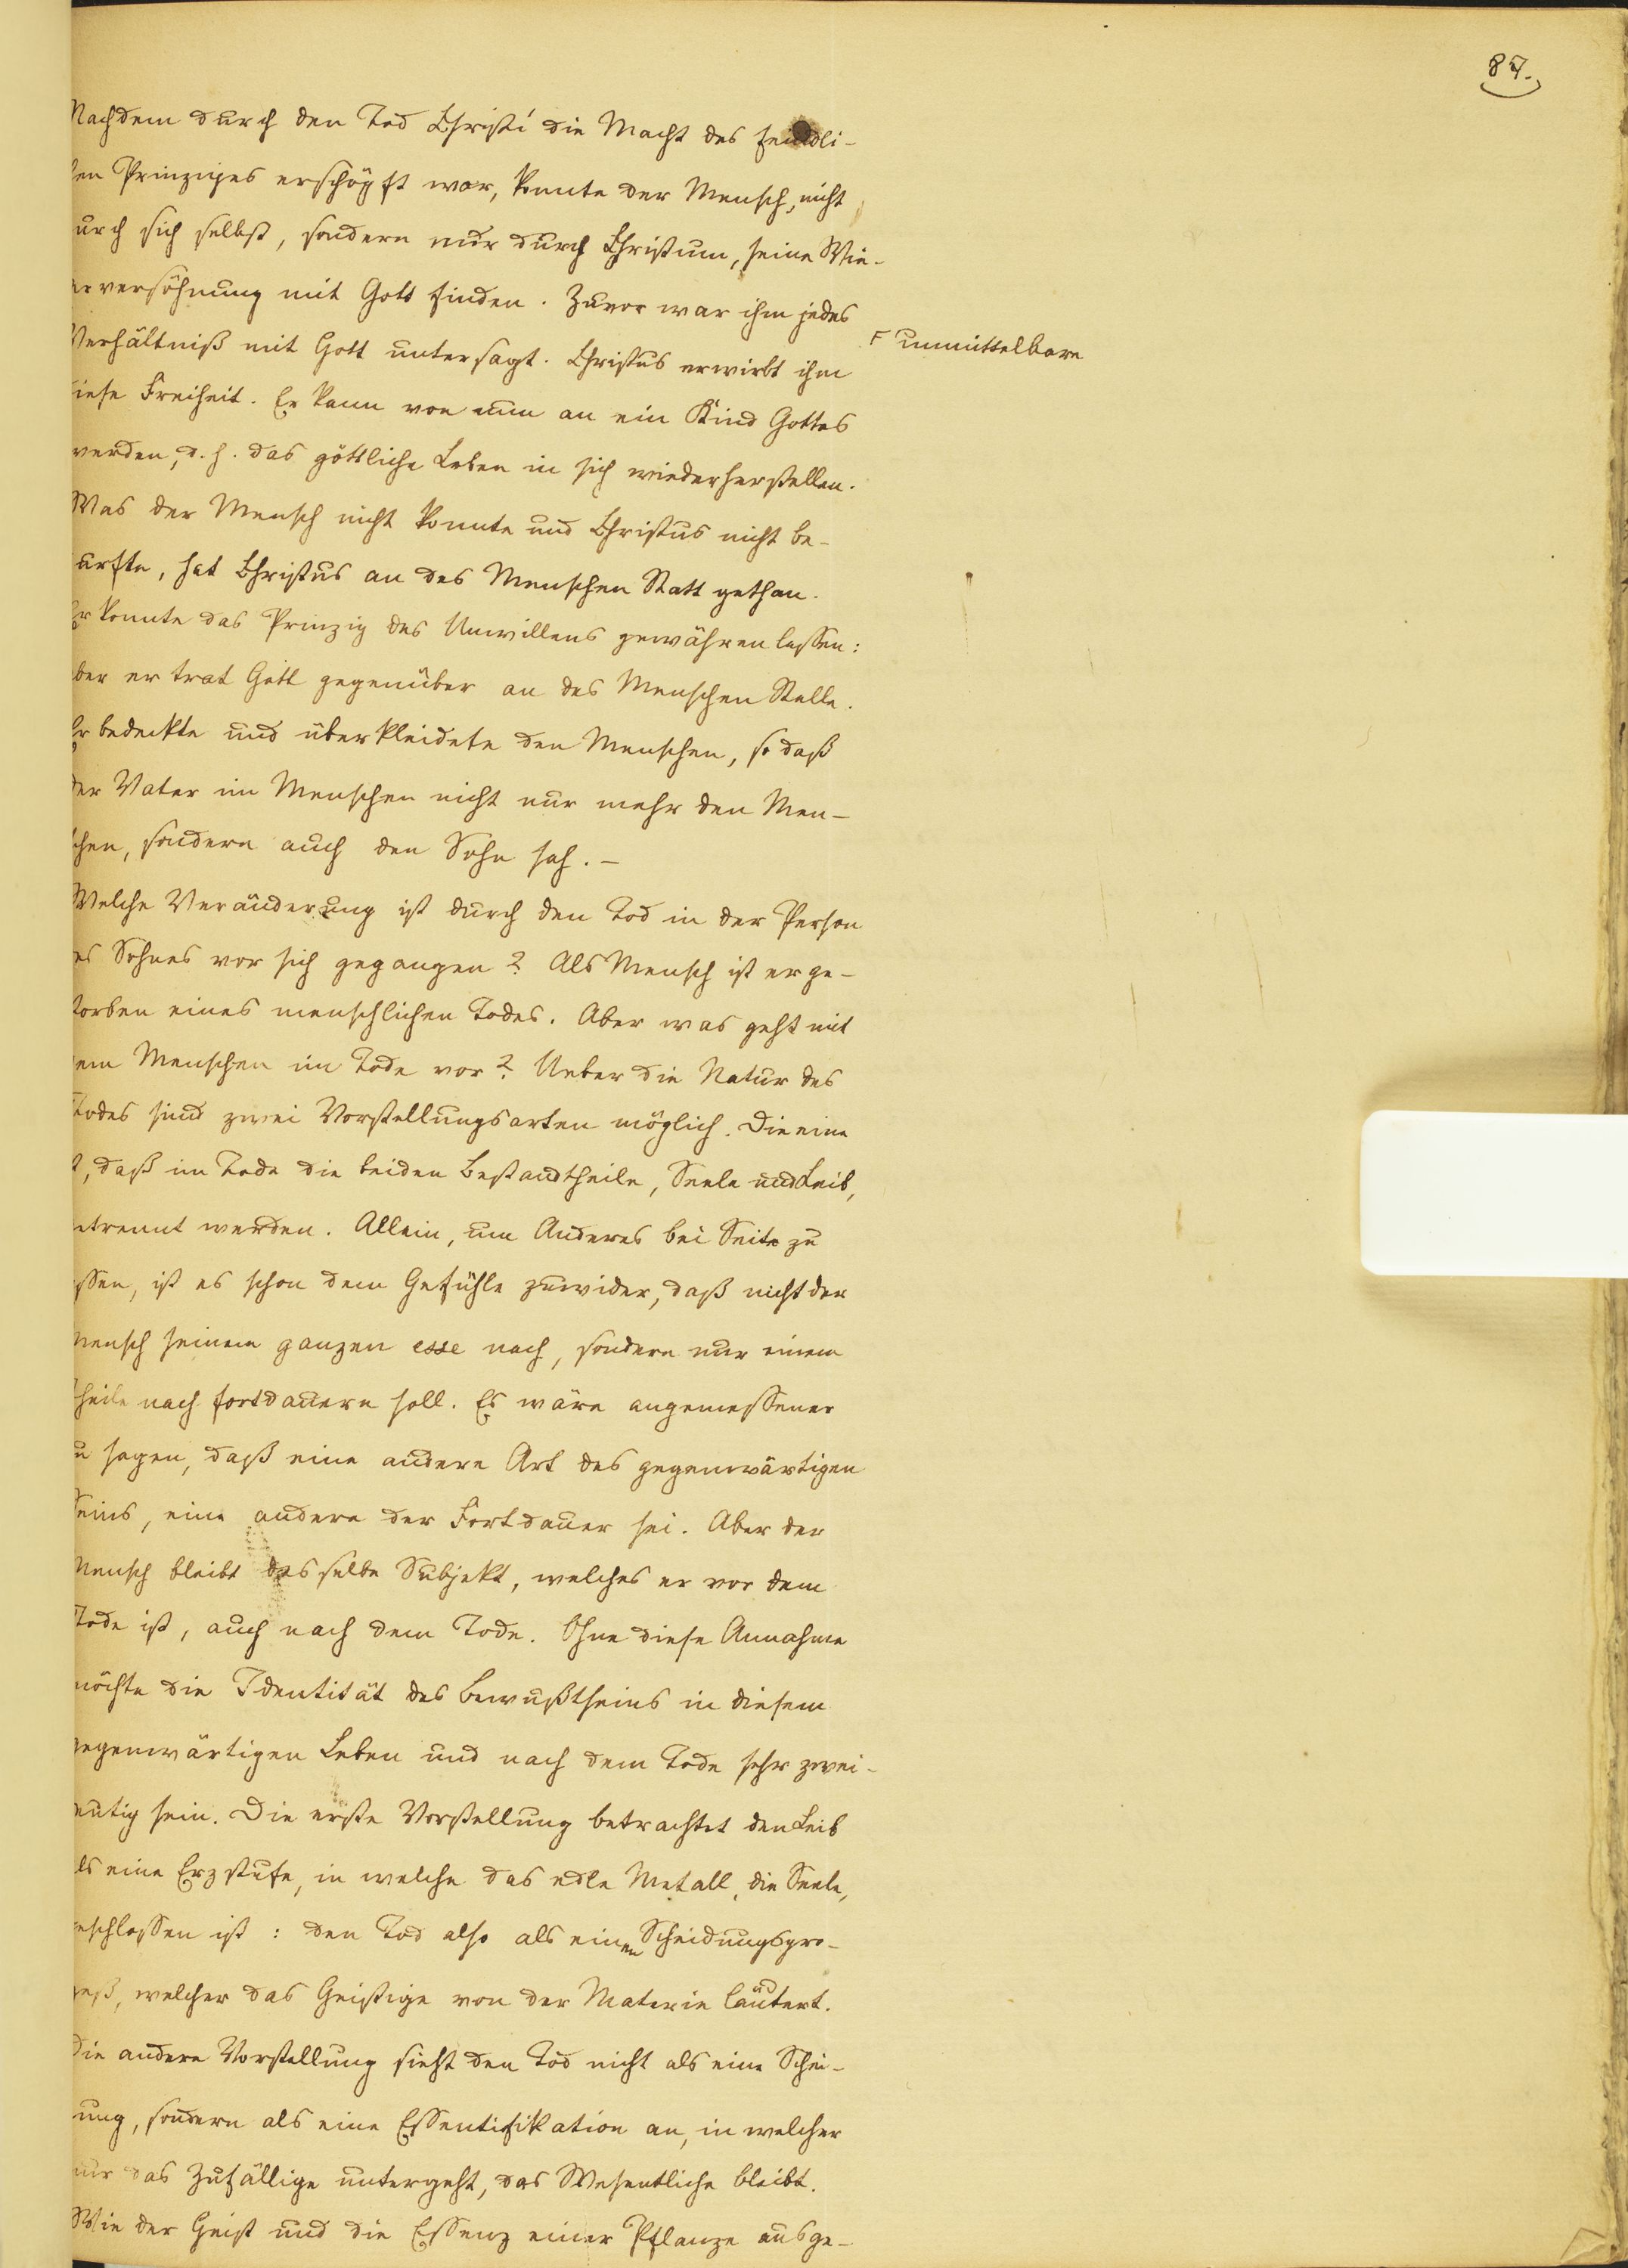 87.
Nachdem durch den Tod Christi die Macht des feindli-
en Prinzipes erschöpft war, konnte der Mensch, nicht
urch sich selbst, sondern nur durch Christum, seine Wie-
erversöhnung mit Gott finden. Zuvor war ihm jedes
F unmittelbare
Verhältniß mit Gott untersagt. Christus erwirbt ihm
iese Freiheit. Er kann von nun an ein Kind Gottes
werden, d. h. das göttliche Leben in sich wiederherstellen.
Was der Mensch nicht konnte und Christus nicht be-
urfte, hat Christus an des Menschen Statt gethan.
Er konnte das Prinzip des Unwillens gewähren lassen:
ber er trat Gott gegenüber an des Menschen Stelle.
Er bedeckte und überkleidete den Menschen, so daß
der Vater im Menschen nicht nur mehr den Men-
chen, sondern auch den Sohn sah. –
Welche Veränderung ist durch den Tod in der Person
es Sohnes vor sich gegangen? Als Mensch ist er ge-
torben eines menschlichen Todes. Aber was geht mit
em Menschen im Tode vor? Ueber die Natur des
Todes sind zwei Vorstellungsarten möglich. Die eine
t, daß im Tode die beiden Bestandtheile, Seele und Leib,
etrennt werden. Allein, um Anderes bei Seite zu
ssen, ist es schon dem Gefühle zuwider, daß nicht der
Mensch seinem ganzen esse nach, sondern nur einem
heile nach fortdauern soll. Es wäre angemessener
u sagen, daß eine andere Art des gegenwärtigen
Seins, eine andere der Fortdauer sei. Aber der
Mensch bleibt dasselbe Subjekt, welches er vor dem
Tode ist, auch nach dem Tode. Ohne diese Annahme
möchte die Identität des Bewußtseins in diesem
gegenwärtigen Leben und nach dem Tode sehr zwei-
eutig sein. Die erste Vorstellung betrachtet den Leib
ls eine Erzstufe, in welche das edle Metall, die Seele,
eschlossen ist: den Tod also als einen Scheidungspro-
zeß, welcher das Geistige von der Materie läutert.
Die andere Vorstellung sieht den Tod nicht als eine Schei-
ung, sondern als eine Essentifikation an, in welcher
nur das Zufällige untergeht, das Wesentliche bleibt.
Wie der Geist und die Essenz einer Pflanze ausge-